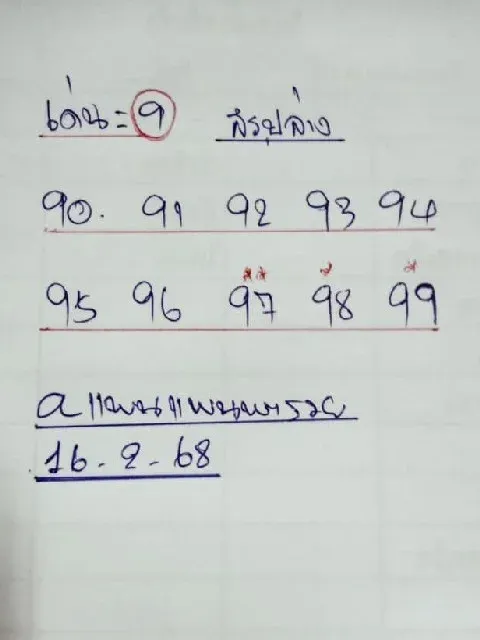 เด่น = 9 สรุปล่าง
90. 91 92 93 94
95 96 97 98 99
16-2-68